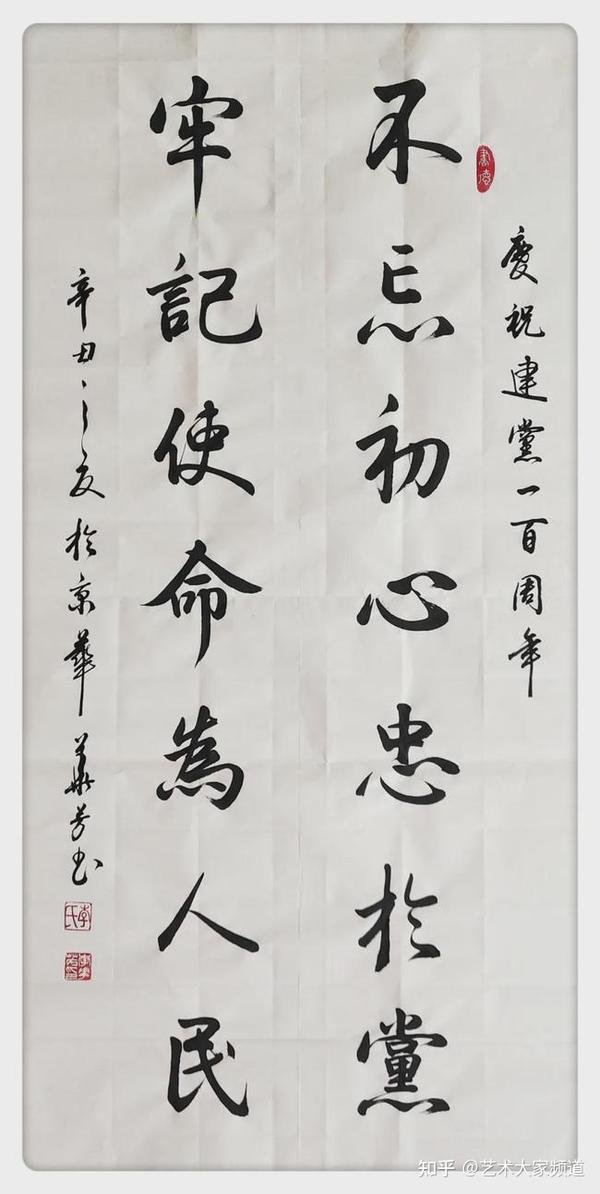 慶祝建黨一百周年
不忘初心忠於黨
牢記使命為人民
辛丑之夏於京華華芳书
李氏
知乎 @艺术大家频道